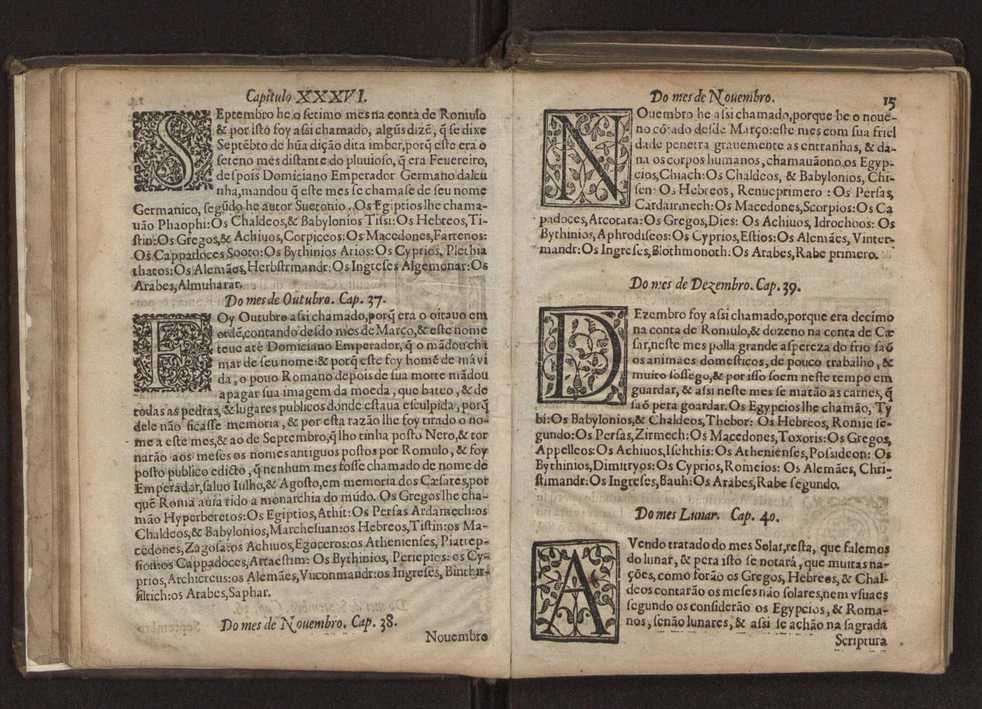 Capitulo XXXVI.
SEptembro he o setimo mes na conta de Romulo
& por isto foy assi chamado, algũs dizẽ, q̃ se dixe
Septẽbto de hũa dição dita imber,porq̃ este era o
seteno mes distante do pluuioso, q̃ era Feuereiro,
despois Domiciano Emperador Germano dalcu
nha,mandou q̃ este mes se chamase de seu nome
Germanico, segũdo he autor Suetonio. Os Egiptios lhe chama-
uão Phaophi:Os Chaldeos,& Babylonios Tissi: Os Hebreos, Ti-
strin:Os Gregos,& Achiuos,Corpiceos:Os Macedones,Fartenos:
Os Cappadoces Sooto:Os Bythinios Arios: Os Cyprios, Plethia
thatos:Os Alemães,Herbstmandr:Os Ingreses Algemonar:Os
Arabes,Almuharar.
Do mes de Outubro. Cap. 37.
FOy Outubro assi chamado,porq̃ era o oitauo em
ordẽ,contando desdo mes de Março,& este nome
teue atè Domiciano Emperador, q̃ o mãdou cha
mar de seu nome: & porq̃ este foy homẽ de má vi
da, o pouo Romano depois de sua morte mãdou
apagar sua imagem da moeda, que bateo, & de
todas as pedras, & lugares publicos donde estaua esculpida, porq̃
dele não ficasse memoria, & por esta razão lhe foy tirado o no-
me a este mes,& ao de Septembro,q̃ lho tinha posto Nero,& tor
narão aos meses os nomes antiguos postos por Romulo, & foy
posto publico edicto, q̃ nenhum mes fosse chamado de nome de
Emperador,saluo Iulho,& Agosto,em memoria dos Cæsares,por
quẽ Roma auia tido a monarchia do mũdo. Os Gregos lhe cha-
mão Hyperberetos:Os Egiptios,Athit: Os Persas Ardamech:os
Chaldeos,& Babylonios,Marchesuan:os Hebreos,Tistin:os Ma-
cedones,Zagosa:os Achiuos,Egoceros:os Athenienses, Piattep-
sion:os Cappadoces,Artaestim: Os Bythinios, Periepios: os Cy-
prios,Archiereus:os Alemães,Vuconmandr:os Ingreses, Binthir-
filtich:os Arabes,Saphar.
Do mes de Nouembro. Cap. 38.
Nouembro
Do mes de Nouembro. 15
NOuembro he assi chamado,porque he o noue-
no cõtado desde Março:este mes com sua friel
dade penetra grauemente as entranhas, & da-
na os corpos humanos, chamauãono os Egyp-
cios,Chiach: Os Chaldeos, & Babylonios, Chi-
sen: Os Hebreos, Renueprimero: Os Persas,
Cardairmech: Os Macedones,Scorpios: Os Ca
padoces,Arcotata: Os Gregos,Dies: Os Achiuos, Idrochoos: Os
Bythinios,Aphrodiseos: Os Cyprios,Estios: Os Alemães, Vinter-
mandr: Os Ingreses,Blothmonoth: Os Arabes,Rabe primero.
Do mes de Dezembro. Cap. 39.
DEzembro foy assi chamado,porque era decimo
na conta de Romulo,& dozeno na conta de Cæ
sar,neste mes polla grande aspereza do frio saõ
os animaes domesticos, de pouco trabalho, &
muito sossego,& por isso soem neste tempo em
guardar, & assi neste mes se matão as carnes, q̃
saõ pera goardar. Os Egypcios lhe chamão, Ty
bi:Os Babylonios,& Chaldeos, Thebor: Os Hebreos, Ronie se-
gundo: Os Persas, Zirmech: Os Macedones,Toxoris: Os Gregos,
Appelleos: Os Achiuos,Isehthis: Os Athenienses,Possideon: Os
Bythinios,Dimitryos: Os Cyprios,Romeios: Os Alemães, Chri-
stimandr: Os Ingreses,Bauh: Os Arabes,Rabe segundo.
Do mes Lunar. Cap. 40.
AVendo tratado do mes Solar,resta, que falemos
do lunar, & pera isto se notará, que muitas na-
ções,como forão os Gregos, Hebreos, & Chal-
deos contarão os meses não solares,nem vsuaes
segundo os considerão os Egypcios, & Roma-
nos, senão lunares, & assi se achão na sagrada
Scriptura